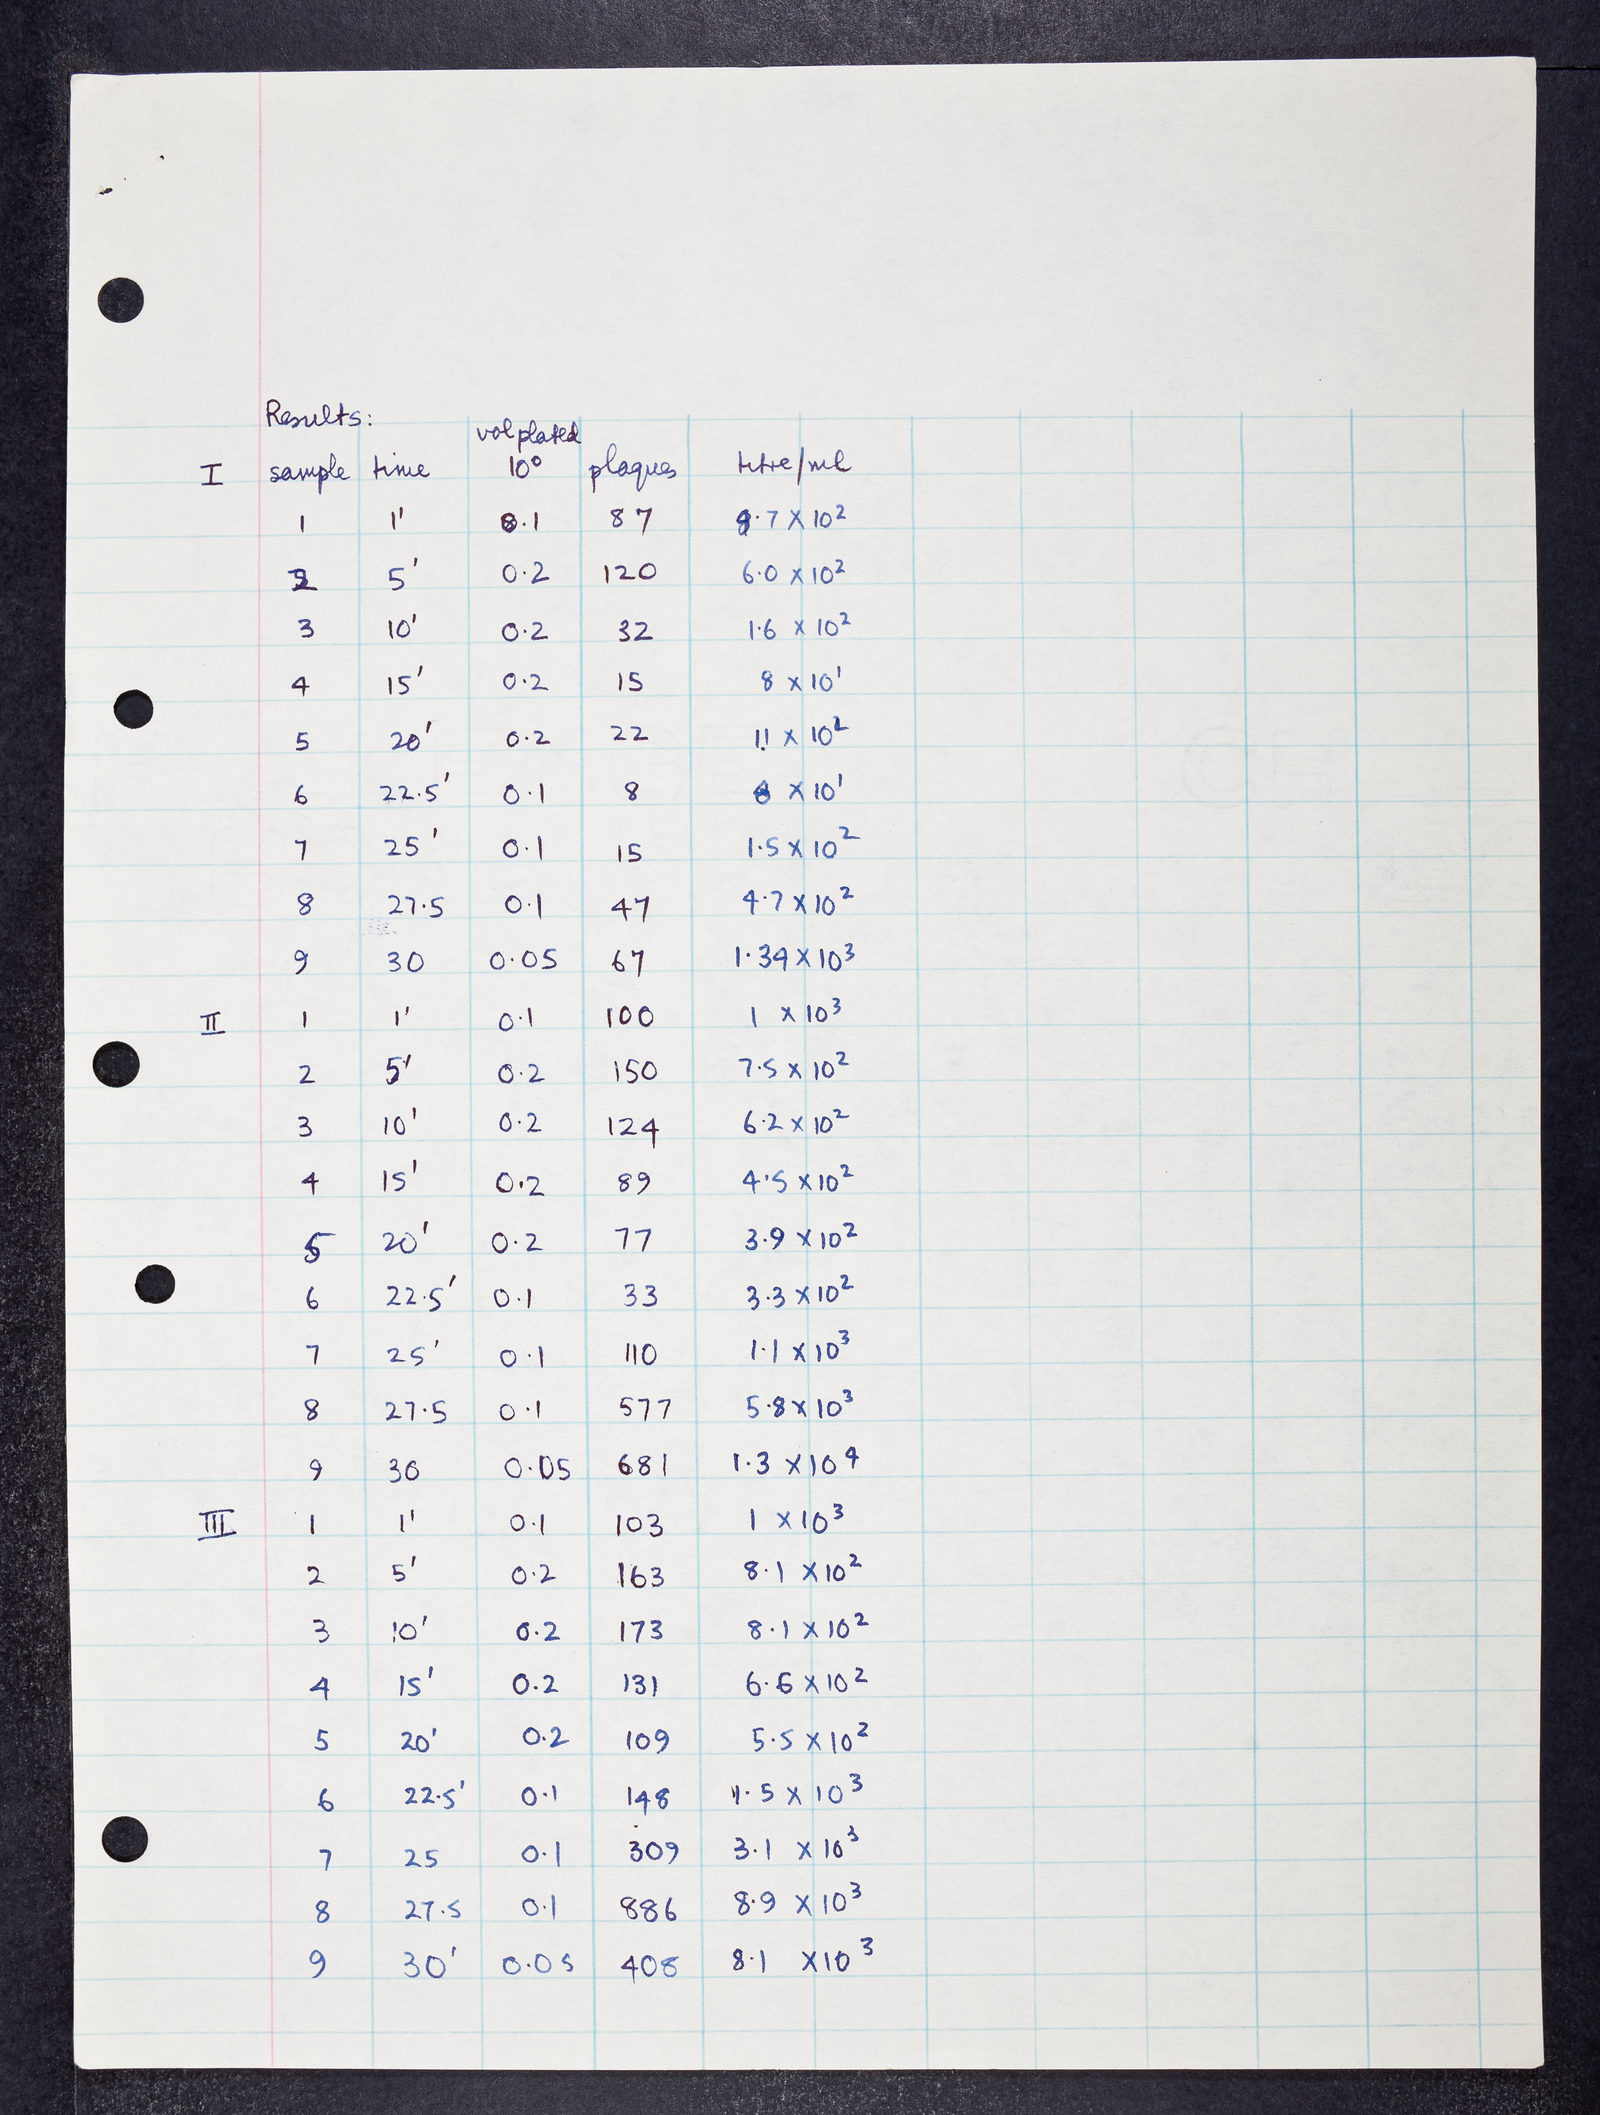 Results:
vol plated
I sample time 10⁰ plaques titre/ml
1 1' 0.1 87 8.7 × 10²
2 5' 0.2 120 6.0 × 10²
3 10' 0.2 32 1.6 × 10²
4 15' 0.2 15 8 × 10¹
5 20' 0.2 22 1.1 × 10²
6 22.5' 0.1 8 8 × 10¹
7 25' 0.1 15 1.5 × 10²
8 27.5 0.1 47 4.7 × 10²
9 30 0.05 67 1.34 × 10³
II 1 1' 0.1 100 1 × 10³
2 5' 0.2 150 7.5 × 10²
3 10' 0.2 124 6.2 × 10²
4 15' 0.2 89 4.5 × 10²
5 20' 0.2 77 3.9 × 10²
6 22.5' 0.1 33 3.3 × 10²
7 25' 0.1 110 1.1 × 10³
8 27.5 0.1 577 5.8 × 10³
9 30 0.05 681 1.3 × 10⁴
III 1 1' 0.1 103 1 × 10³
2 5' 0.2 163 8.1 × 10²
3 10' 0.2 173 8.1 × 10²
4 15' 0.2 131 6.6 × 10²
5 20' 0.2 109 5.5 × 10²
6 22.5' 0.1 148 1.5 × 10³
7 25 0.1 309 3.1 × 10³
8 27.5 0.1 886 8.9 × 10³
9 30' 0.05 408 8.1 × 10³